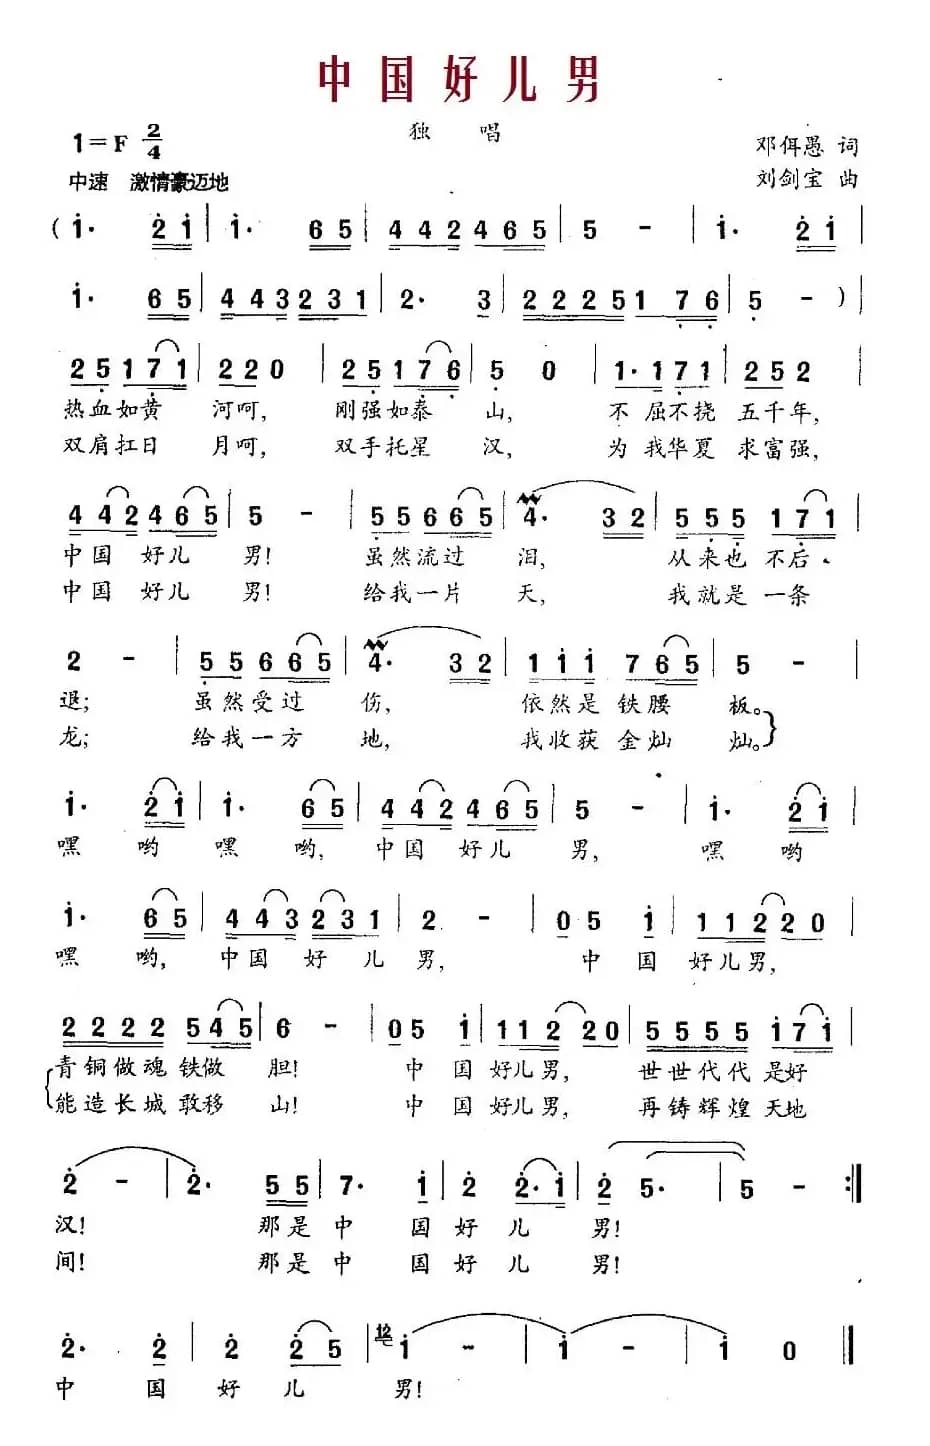 中国好儿男
独 唱
1=F 2/4
邓佴愚 词
中速 激情豪迈地
刘剑宝 曲
( i· 2̇ i | i· 6 5 | 4 4 2 4 6 5 | 5 - | i· 2̇ i |
i· 6 5 | 4 4 3 2 3 1 | 2· 3 | 2 2 2 5 1 7 6 | 5 - ) |
2 5 1 7 1 | 2 2 0 | 2 5 1 7 6 | 5 0 | 1· 1 7 1 | 2 5 2 |
热血如黄 河呵, 刚强如泰 山, 不 屈不挠 五千年,
双肩扛日 月呵, 双手托星 汉, 为 我华夏 求富强,
4 4 2 4 6 5 | 5 - | 5 5 6 6 5 | 4· 3 2 | 5 5 5 1 7 1 |
中国 好儿 男! 虽然流过 泪, 从来也 不后、
中国 好儿 男! 给我一片 天, 我就是 一条
2 - | 5 5 6 6 5 | 4· 3 2 | 1 i i 7 6 5 | 5 - |
退; 虽然受过 伤, 依然是 铁腰 板。
龙; 给我一方 地, 我收获 金灿 灿。
i· 2̇ i | i· 6 5 | 4 4 2 4 6 5 | 5 - | i· 2̇ i |
嘿 哟 嘿 哟, 中国 好儿 男, 嘿 哟
i· 6 5 | 4 4 3 2 3 1 | 2 - | 0 5 i | 1 1 2 2 0 |
嘿 哟, 中国 好 儿 男, 中 国 好儿男,
2 2 2 2 5 4 5 | 6 - | 0 5 i | 1 1 2 2 0 | 5 5 5 5 i 7 i |
青铜做魂 铁做 胆! 中 国 好儿男, 世世代代 是好
能造长城 敢移 山! 中 国 好儿男, 再铸辉煌 天地
2̇ - | 2̇· 5 5 | 7· i | 2̇ 2̇· i | 2̇ 5· | 5 - :||
汉! 那是 中 国 好 儿 男!
间! 那是 中 国 好 儿 男!
2̇· 2̇ | 2̇ 2̇ 5 | 12 i - | i - | i 0 ||
中 国 好 儿 男!